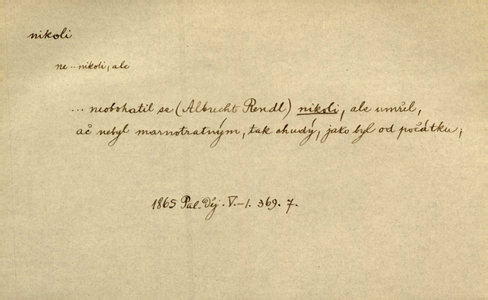 nikoli
ne...nikoli, ale
... neobohatil se (Albrecht Rendl) nikoli, ale umřel,
ač nebyl marnotratným, tak chudý, jako byl od počátku,
1865 Pal. Děj. V.–1. 369. 7.